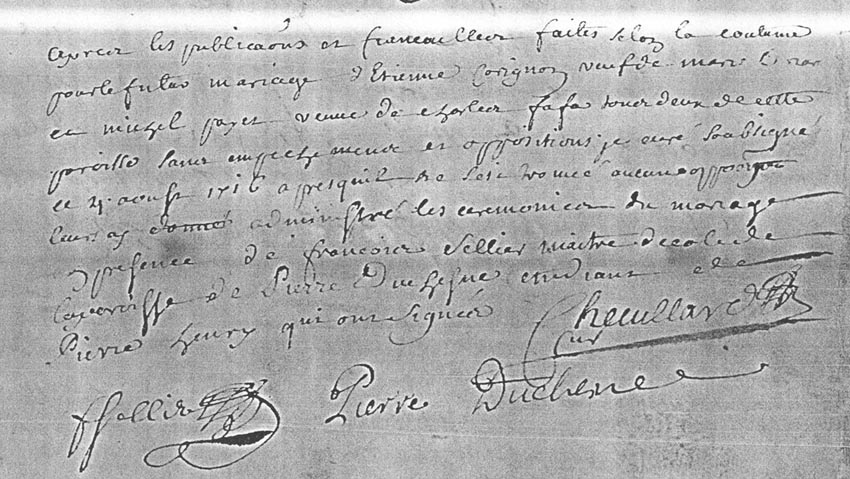 apres les publicaons et fiancailles faites selon la coutume
pour le futur mariage d'Etienne Corignon veuf de marie
et michel payet veuve de charles fafa tous deux de cette
paroisse sans empechemens et oppositions, je curé soubsigné
ce 4. aoust 1716 apres quil ne sest trouvé aucune opposition
leurs ay donné administré les ceremonies du mariage
presence de francois sellier maitre decole de
laparoisse de Pierre Duchesne etudiant et de
Pierre henry qui ont signéez
Cheuillard
Cur
fSellier Pierre Duchene